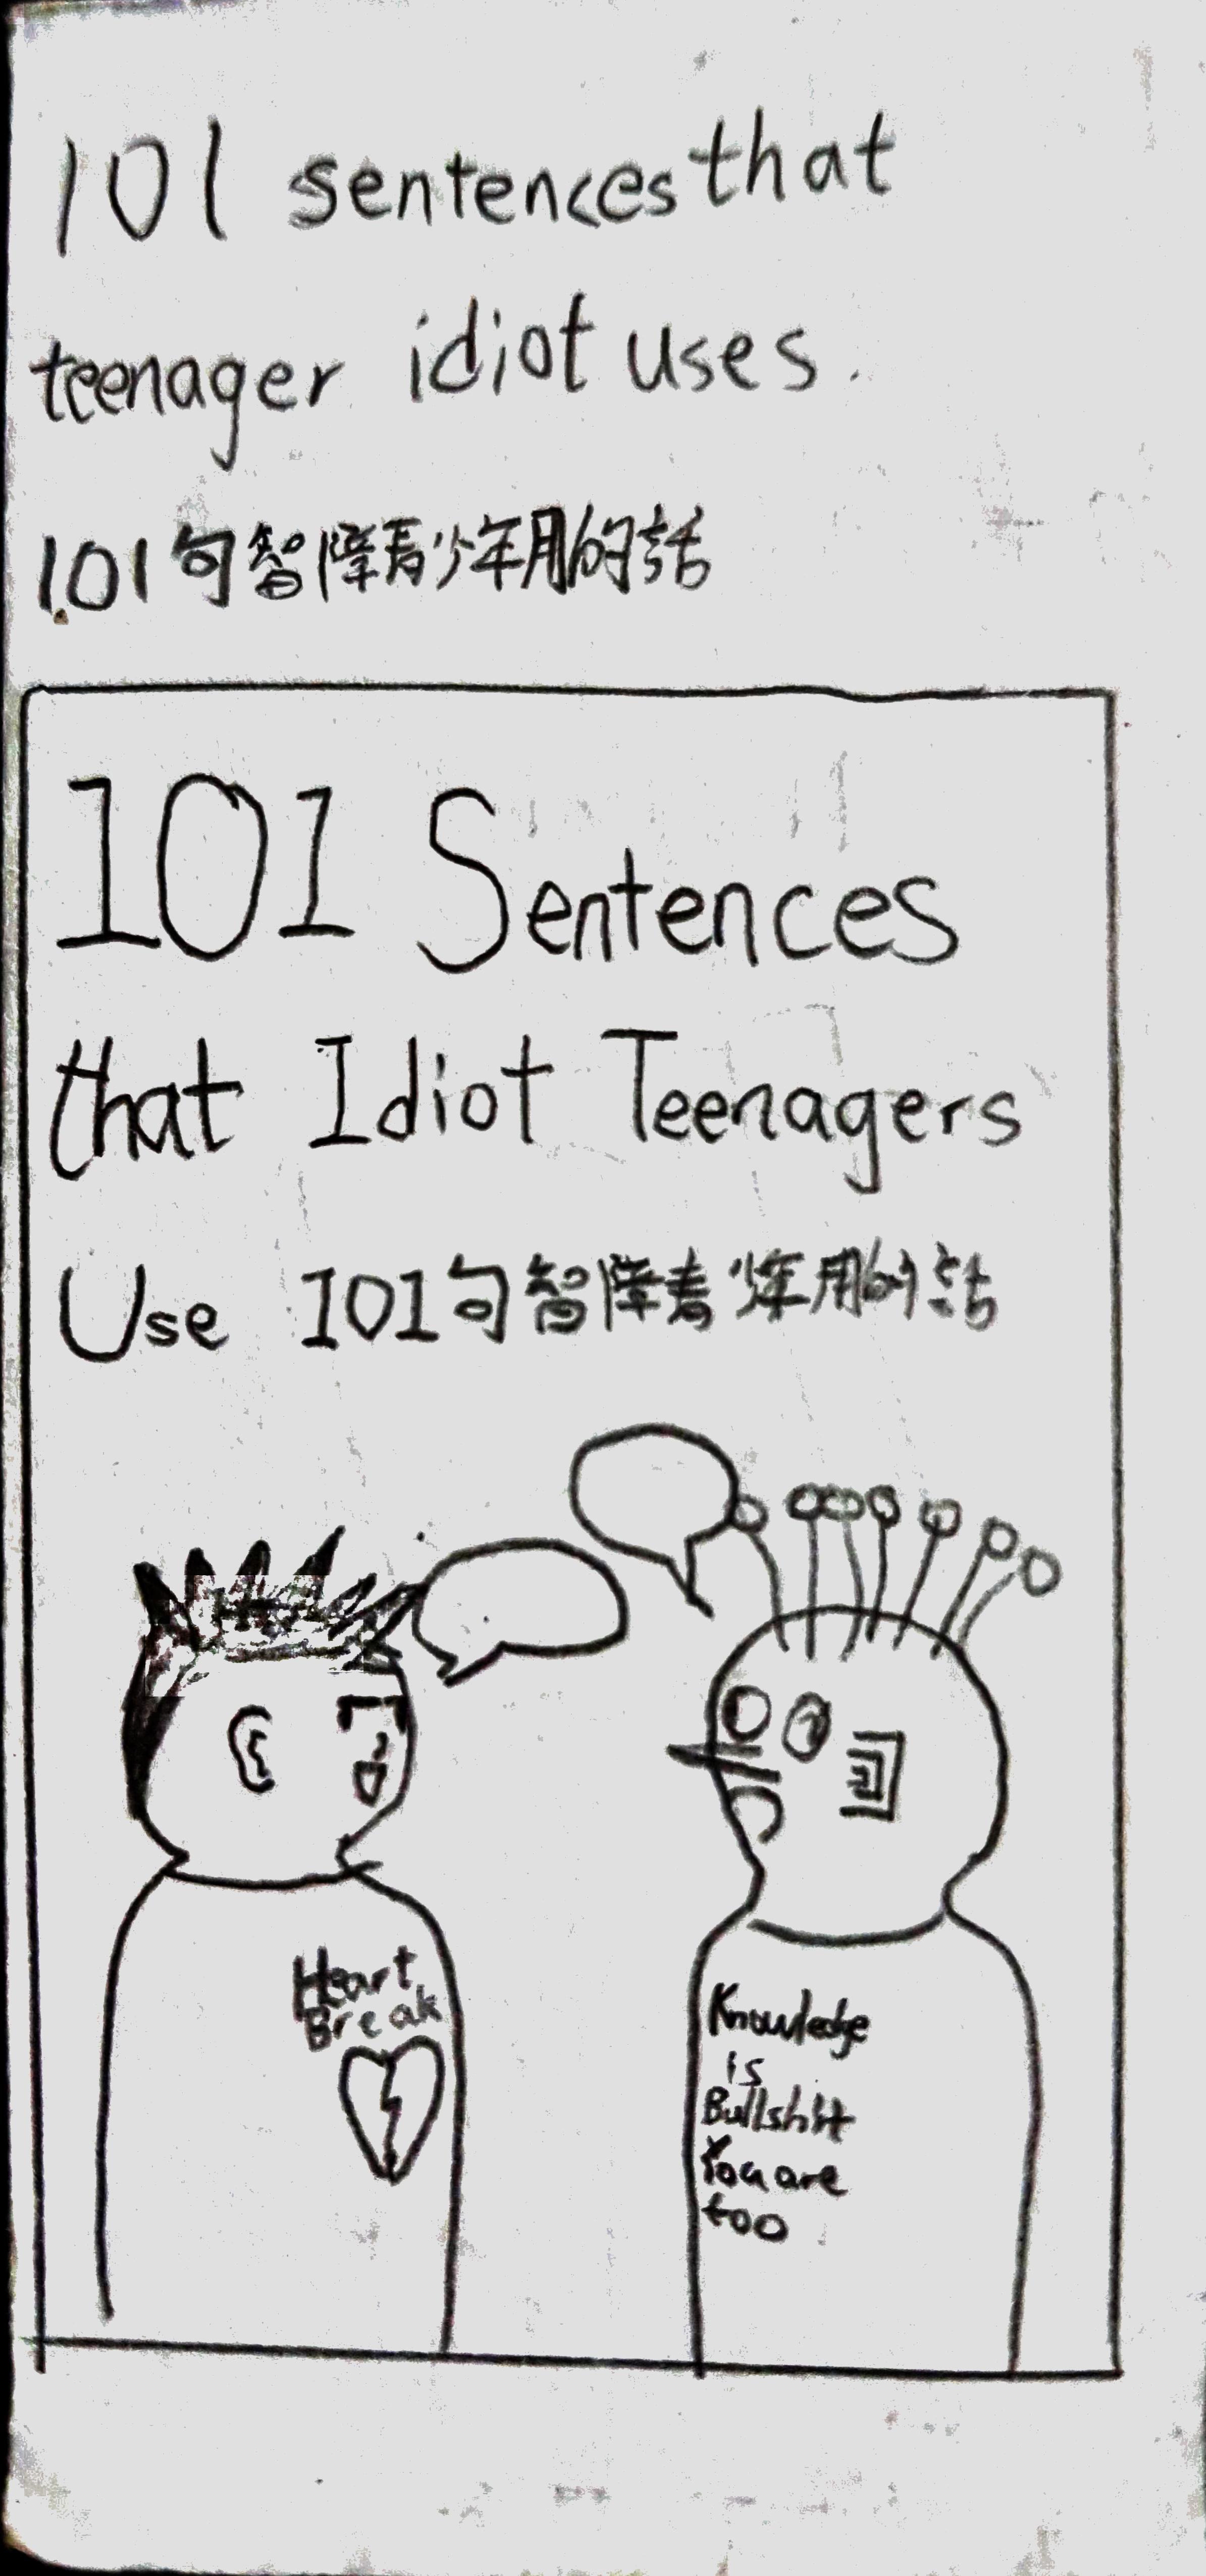 101 sentences that
teenager idiot uses.
101句智障青少年用的话
101 Sentences
that Idiot Teenagers
Use 101句智障青少年用的话
Heart
Break
Knowledge
is
Bullshit
You are
too